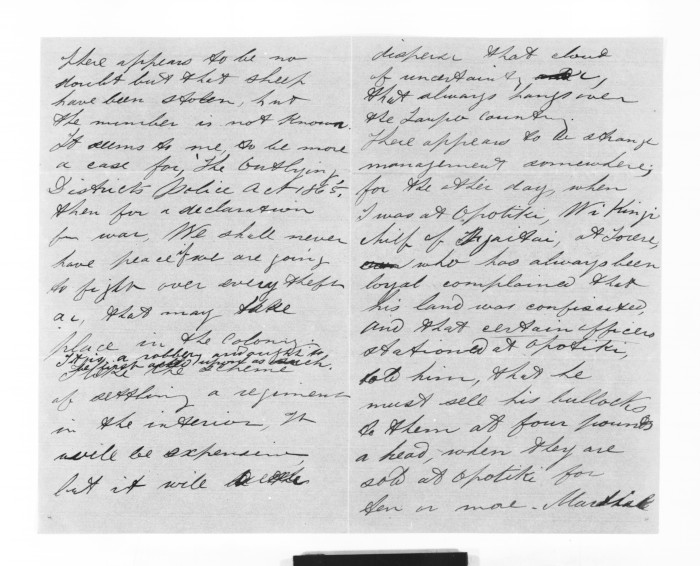 there appears to be no
doubt but that sheep
have been stolen, but
the number is not known.
It seems to me, to be more
a case for, The Outlying
Districts Police Act 1865.
then for a declaration
for war, We shall never
have peace if we are going
to fight over every theft
&c, that may take
place in the Colony.
It is a robbery and ought to
be first acted upon as such.
I like the scheme
of settling a regiment
in the interior, It
will be expensive,
but it will
disperse that cloud
of uncertainty,
that always hangs over
the Taupo country.
There appears to be strange
management somewhere;
for the other day, when
I was at Opotiki, Wi Kingi
chief of Ngaitai, at Torere,
who has always been
loyal complained that
his land was confiscated,
and that certain officers
stationed at Opotiki,
told him, that he
must sell his bullocks
to them at four pounds
a head, when they are
sold at Opotiki for
ten or more. Marshall